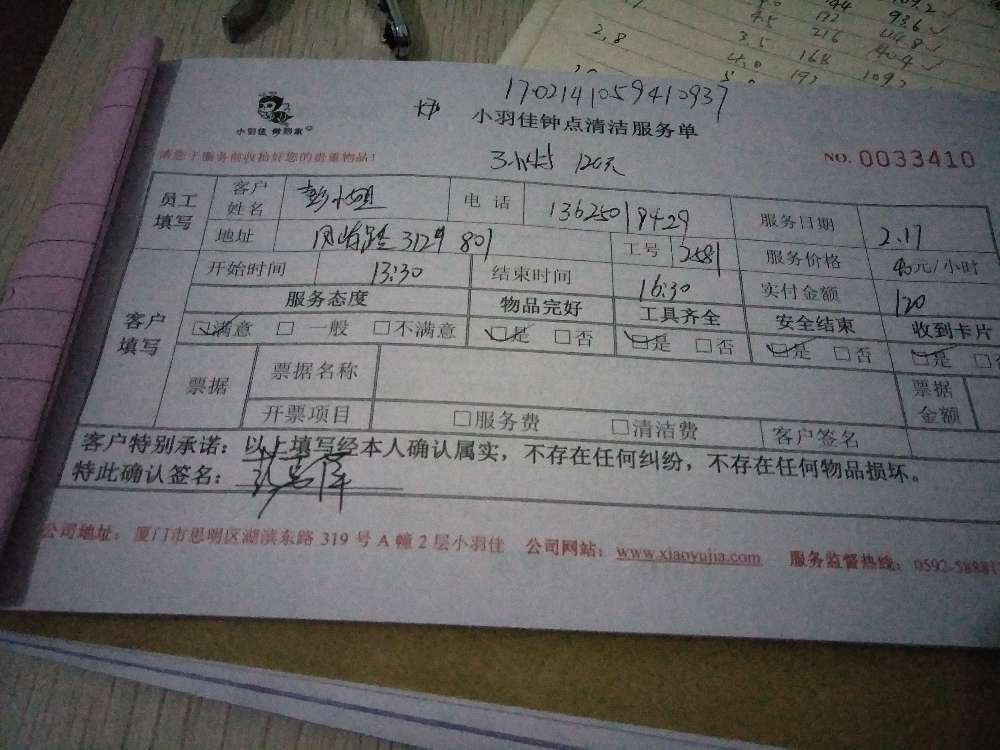 2.8
3.5 216 44.8
4.0 164 40.4
1702141059410937
小羽佳 做到家
小羽佳钟点清洁服务单
请您于服务前收拾好您的贵重物品！
3小时 120元
NO. 0033410
员工填写 客户姓名 彭小姐 电话 13625019429 服务日期 2.17
地址 3129 801 工号 2581 服务价格 40元/小时
开始时间 13:30 结束时间 16:30 实付金额 120
客户填写 服务态度 物品完好 工具齐全 安全结束 收到卡片
满意 一般 不满意 是 否 是 否 是 否 是
票据 票据名称 票据金额
开票项目 服务费 清洁费 客户签名
客户特别承诺：以上填写经本人确认属实，不存在任何纠纷，不存在任何物品损坏。
特此确认签名：
公司地址：厦门市思明区湖滨东路 319 号 A 幢 2 层小羽佳 公司网站：www.xiaoyujia.com 服务监督热线：0592-58881